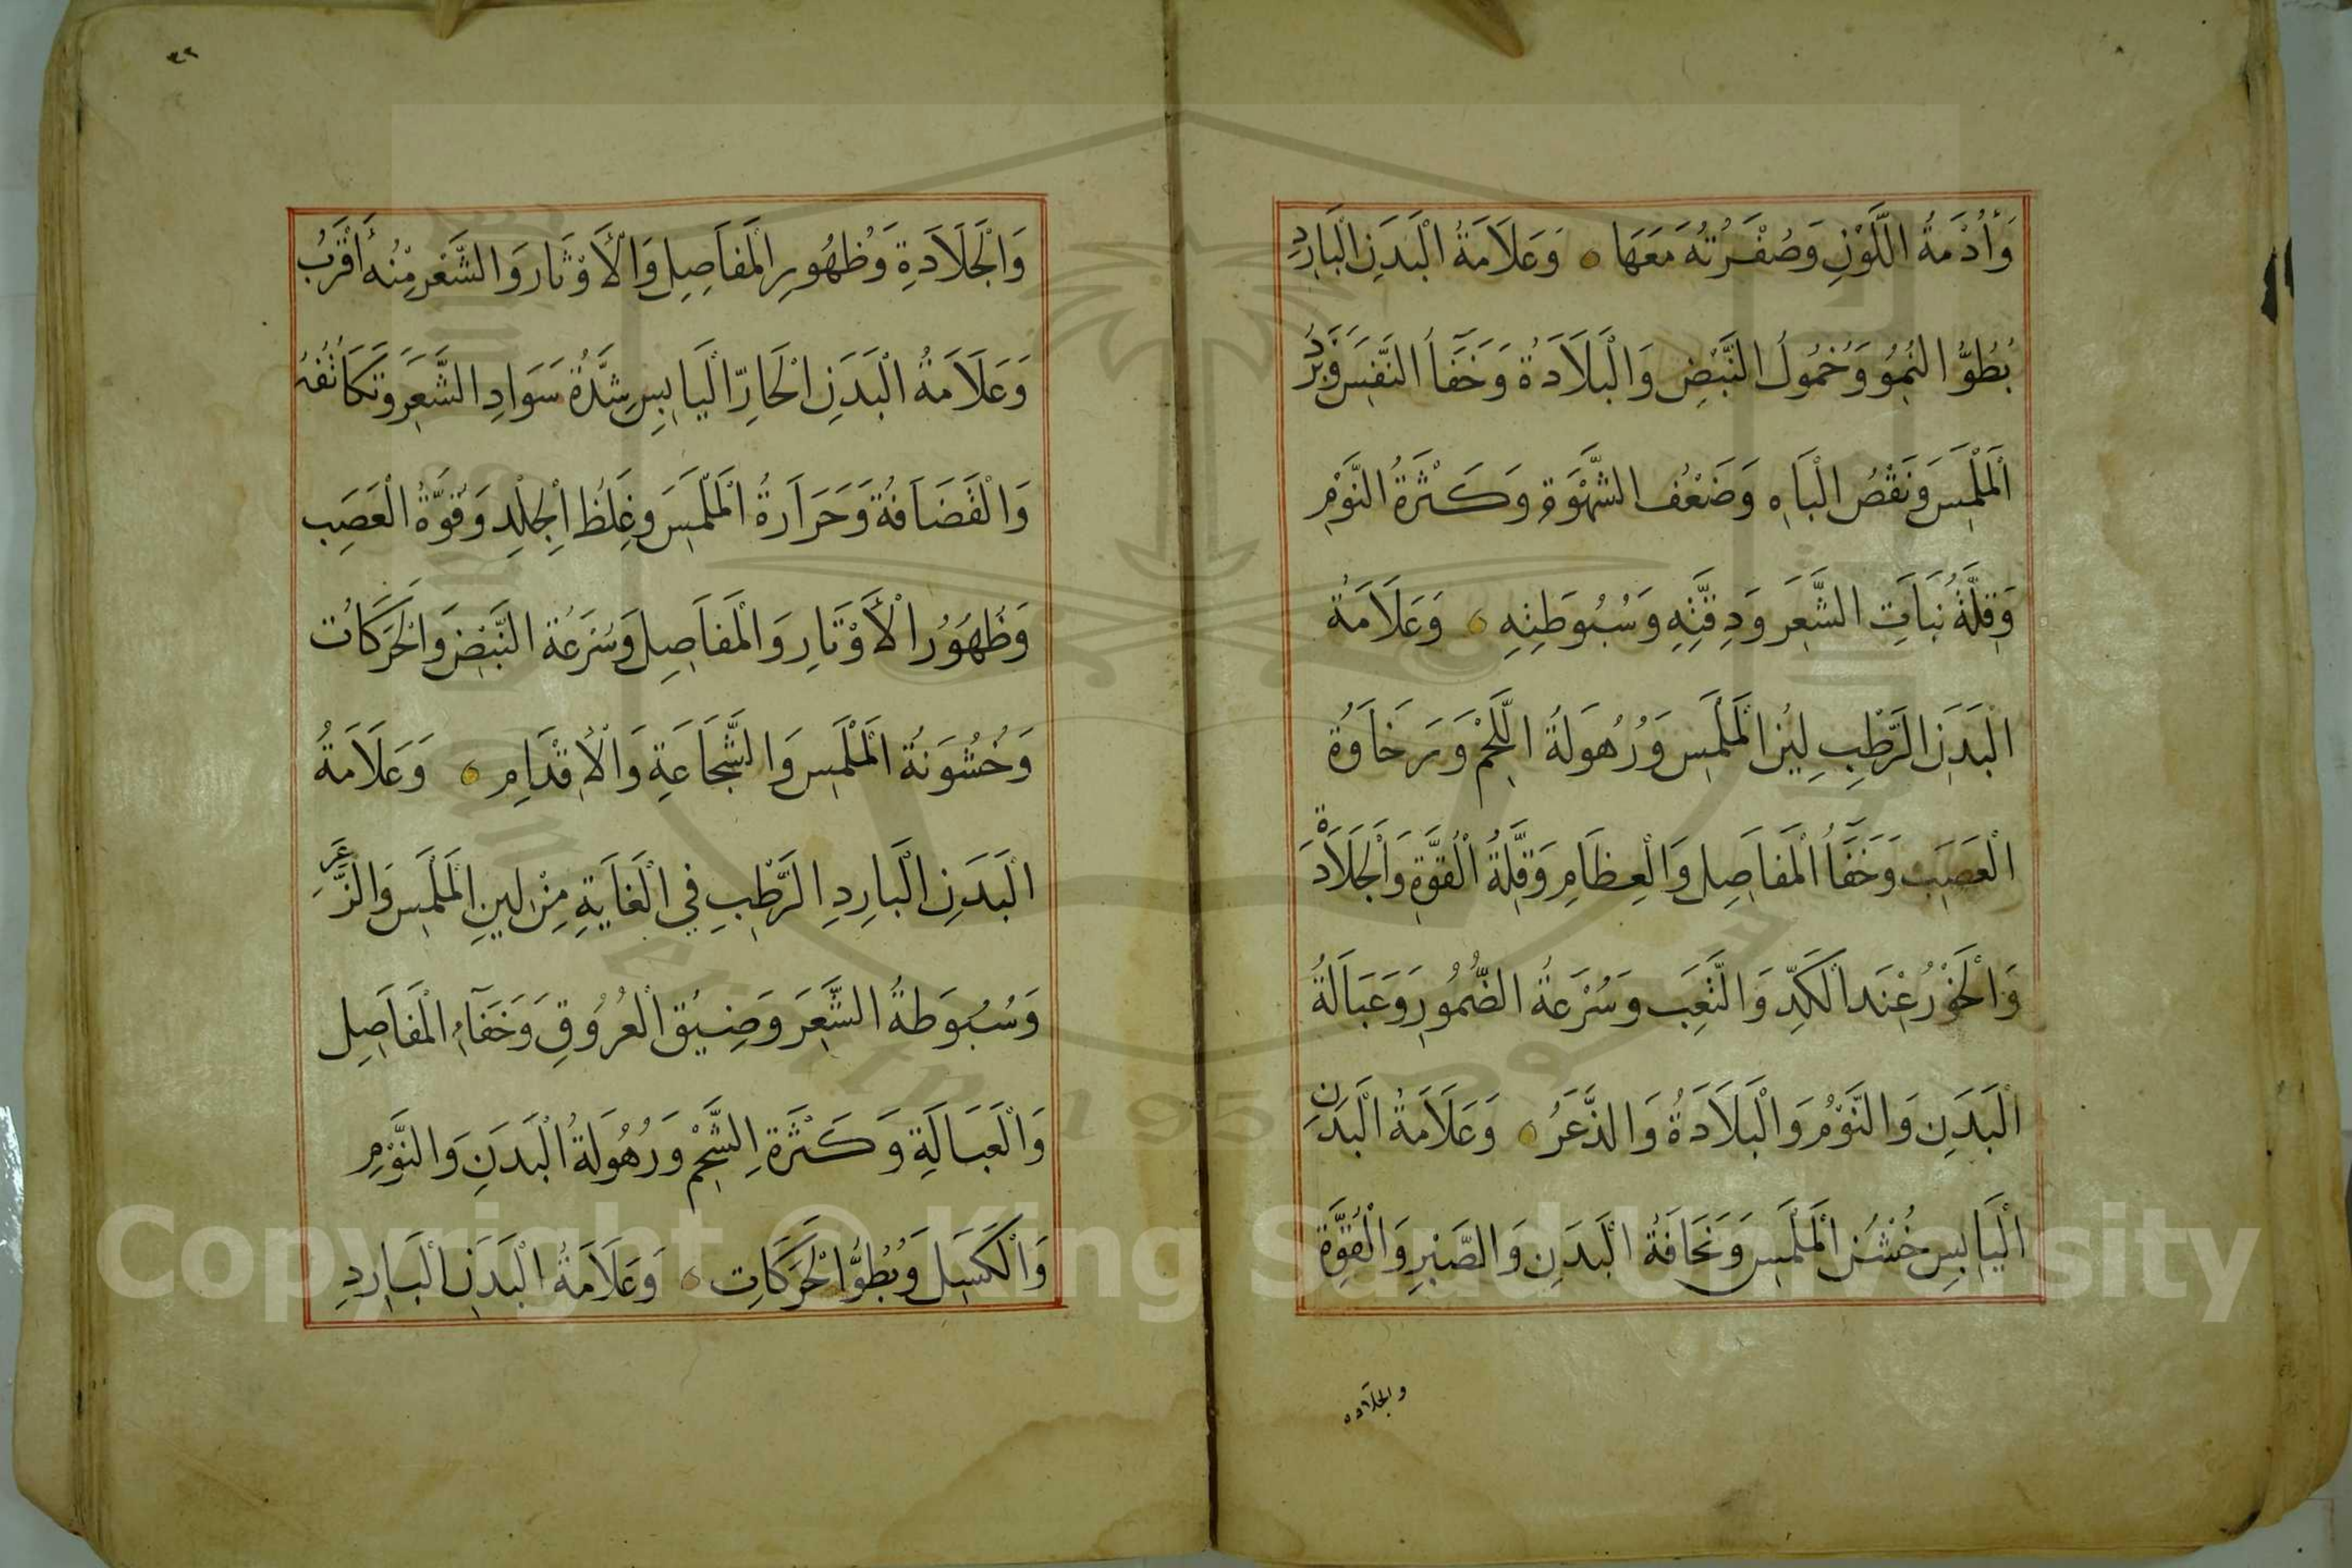 وَأُدْمَةُ اللَّوْنِ وَصُفْرَتُهُ مَعَهَا ۝ وَعَلَامَةُ الْبَدَنِ الْبَارِدِ
بُطُوُّ النُّمُوِّ وَخُمُولُ النَّبْضِ وَالْبَلَادَةُ وَخَفَأُ النَّفَسِ وَبَرْدُ
الْمَلْمَسِ وَنَقْصُ الْبَاهِ وَضَعْفُ الشَّهْوَةِ وَكَثْرَةُ النَّوْمِ
وَقِلَّةُ نَبَاتِ الشَّعَرِ وَدِقَّتِهِ وَسُبُوطَتِهِ ۝ وَعَلَامَةُ
الْبَدَنِ الرَّطْبِ لِينُ الْمَلْمَسِ وَرُهُولَةُ اللَّحْمِ وَرَخَاوَةُ
الْعَصَبِ وَخَفَأُ الْمَفَاصِلِ وَالْعِظَامِ وَقِلَّةُ الْقُوَّةِ وَالْجَلَادَةِ
وَالْخَوْرُ عِنْدَ الْكَدِّ وَالتَّعَبِ وَسُرْعَةُ الضُّمُورِ وَعَبَالَةُ
الْبَدَنِ وَالنَّوْمُ وَالْبَلَادَةُ وَالذَّعَرُ ۝ وَعَلَامَةُ الْبَدَنِ
الْيَابِسِ خُشْنُ الْمَلْمَسِ وَنَحَافَةُ الْبَدَنِ وَالصَّبْرِ وَالْقُوَّةِ
والجلاده
٣٢
وَالْجَلَادَةِ وَظُهُورِ الْمَفَاصِلِ وَالْأَوْتَارِ وَالشَّعَرِ مِنْهُ أَقْرَبُ
وَعَلَامَةُ الْبَدَنِ الْحَارِّ الْيَابِسِ شِدَّةُ سَوَادِ الشَّعَرِ وَتَكَاثُفُهُ
وَالْقَضَافَةُ وَحَرَارَةُ الْمَلْمَسِ وَغِلَظُ الْجِلْدِ وَقُوَّةُ الْعَصَبِ
وَظُهُورُ الْأَوْتَارِ وَالْمَفَاصِلِ وَسُرْعَةُ النَّبْضِ وَالْحَرَكَاتِ
وَخُشُونَةُ الْمَلْمَسِ وَالشَّجَاعَةِ وَالْإِقْدَامِ ۝ وَعَلَامَةُ
الْبَدَنِ الْبَارِدِ الرَّطْبِ فِي الْغَايَةِ مِنْ لِينِ الْمَلْمَسِ وَالزَّعَرِ
وَسُبُوطَةُ الشَّعَرِ وَضِيْقُ الْعُرُوقِ وَخَفَآءِ الْمَفَاصِلِ
وَالْعَبَالَةِ وَكَثْرَةِ الشَّحْمِ وَرُهُولَةُ الْبَدَنِ وَالنَّوْمِ
وَالْكَسَلِ وَبُطُوُّ الْحَرَكَاتِ ۝ وَعَلَامَةُ الْبَدَنِ الْبَارِدِ
Copyright © King Saud University
1957